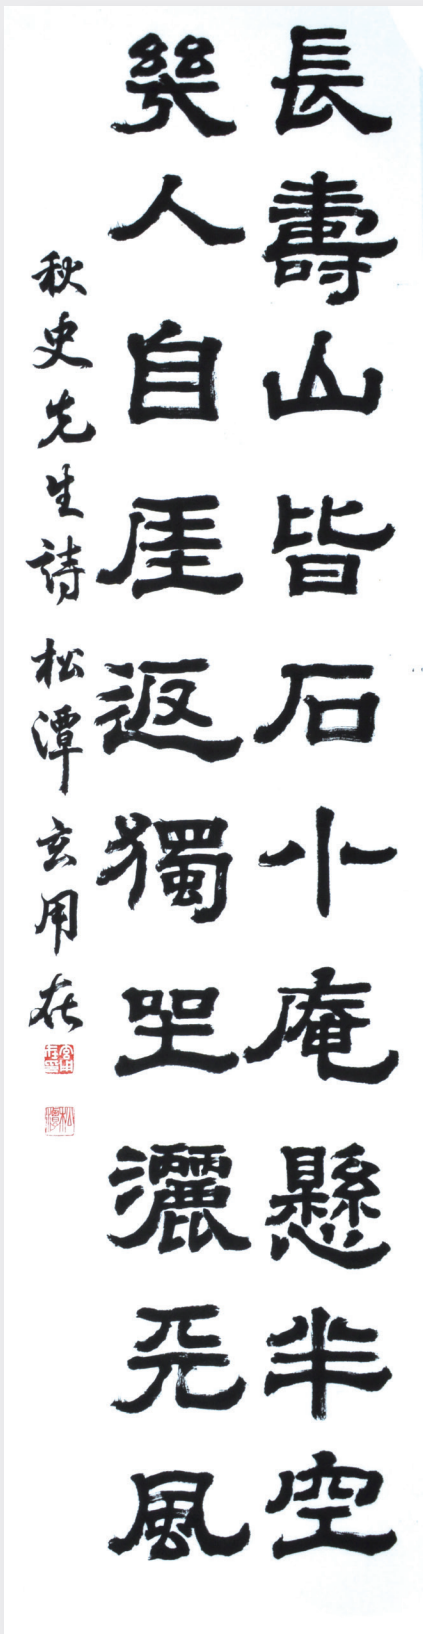 長壽山皆石小庵懸半空
幾人自厓返獨坐灑天風
秋史先生詩 松潭 玄用在
玄用在印
松潭